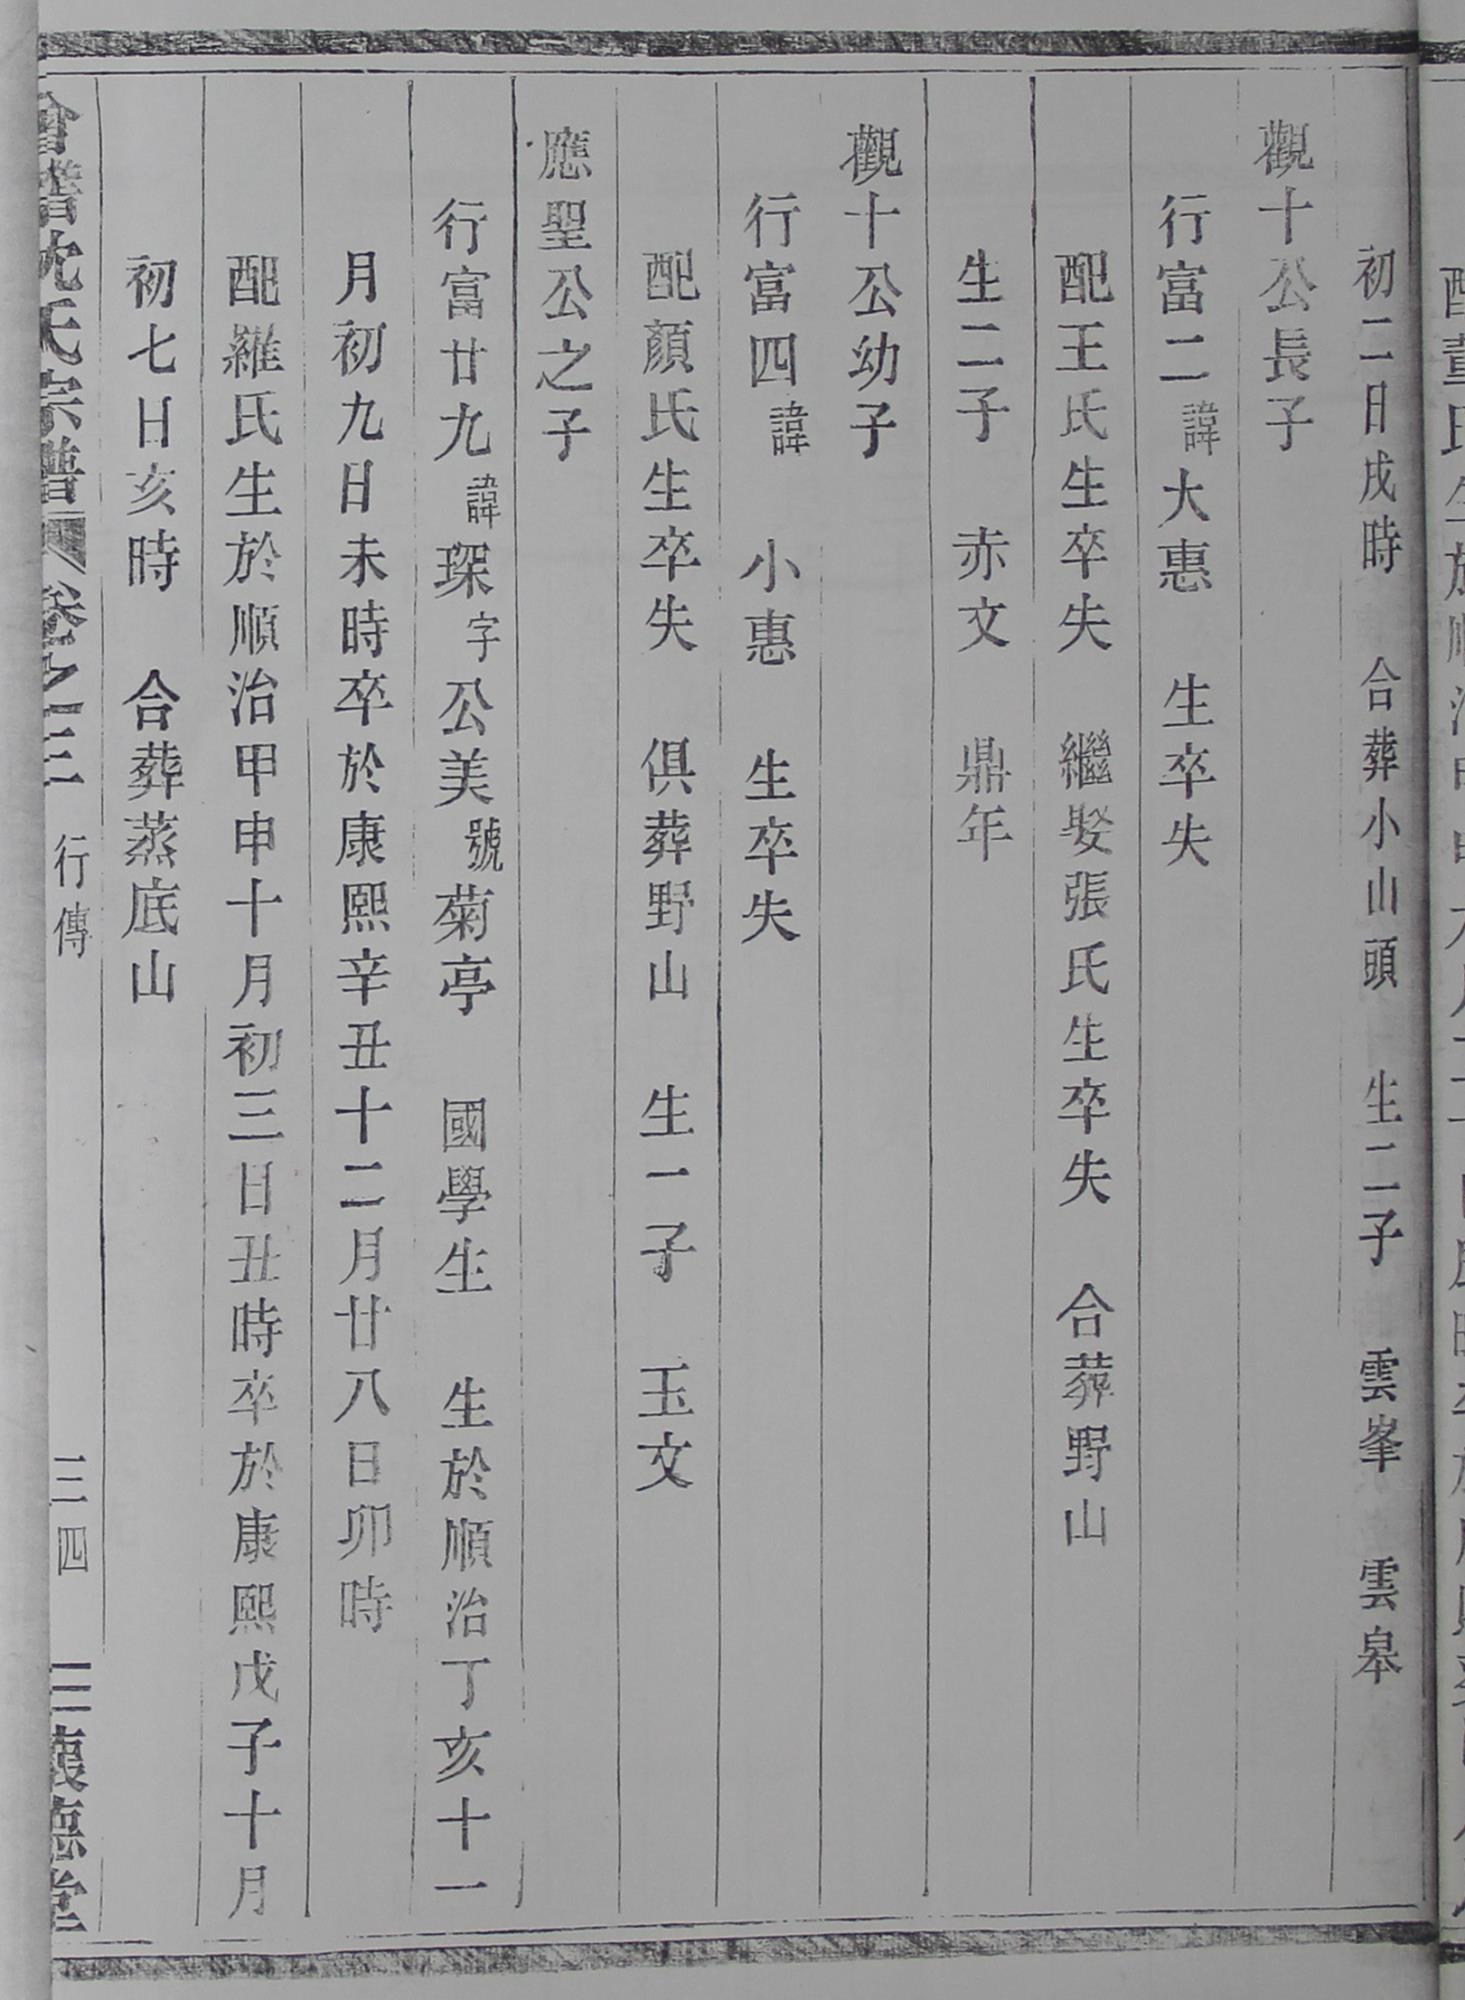 初二日戌時 合葬小山頭 生二子 雲峯 雲皋
觀十公長子
行富二諱大惠 生卒失
配王氏生卒失 繼娶張氏生卒失 合葬野山
生二子 赤文 鼎年
觀十公幼子
行富四諱 小惠 生卒失
配顏氏生卒失 俱葬野山 生一子 玉文
應聖公之子
行富廿九諱琛字公美號菊亭 國學生 生於順治丁亥十一
月初九日未時卒於康熙辛丑十二月廿八日卯時
配羅氏生於順治甲申十月初三日丑時卒於康熙戊子十月
初七日亥時 合葬蒸底山
會稽沈氏宗譜 卷之三 行傳 三四 懷德堂